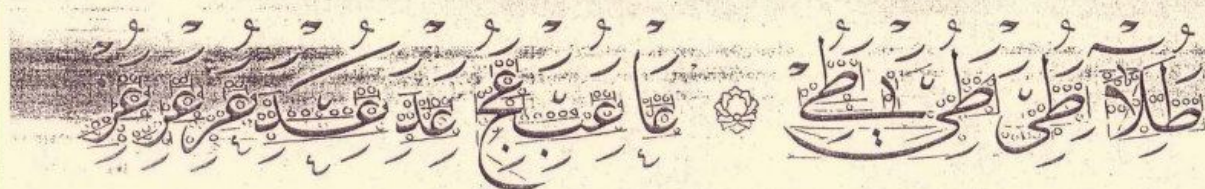 طلا طى طى طى عا عب عج عد عد عر عر عر